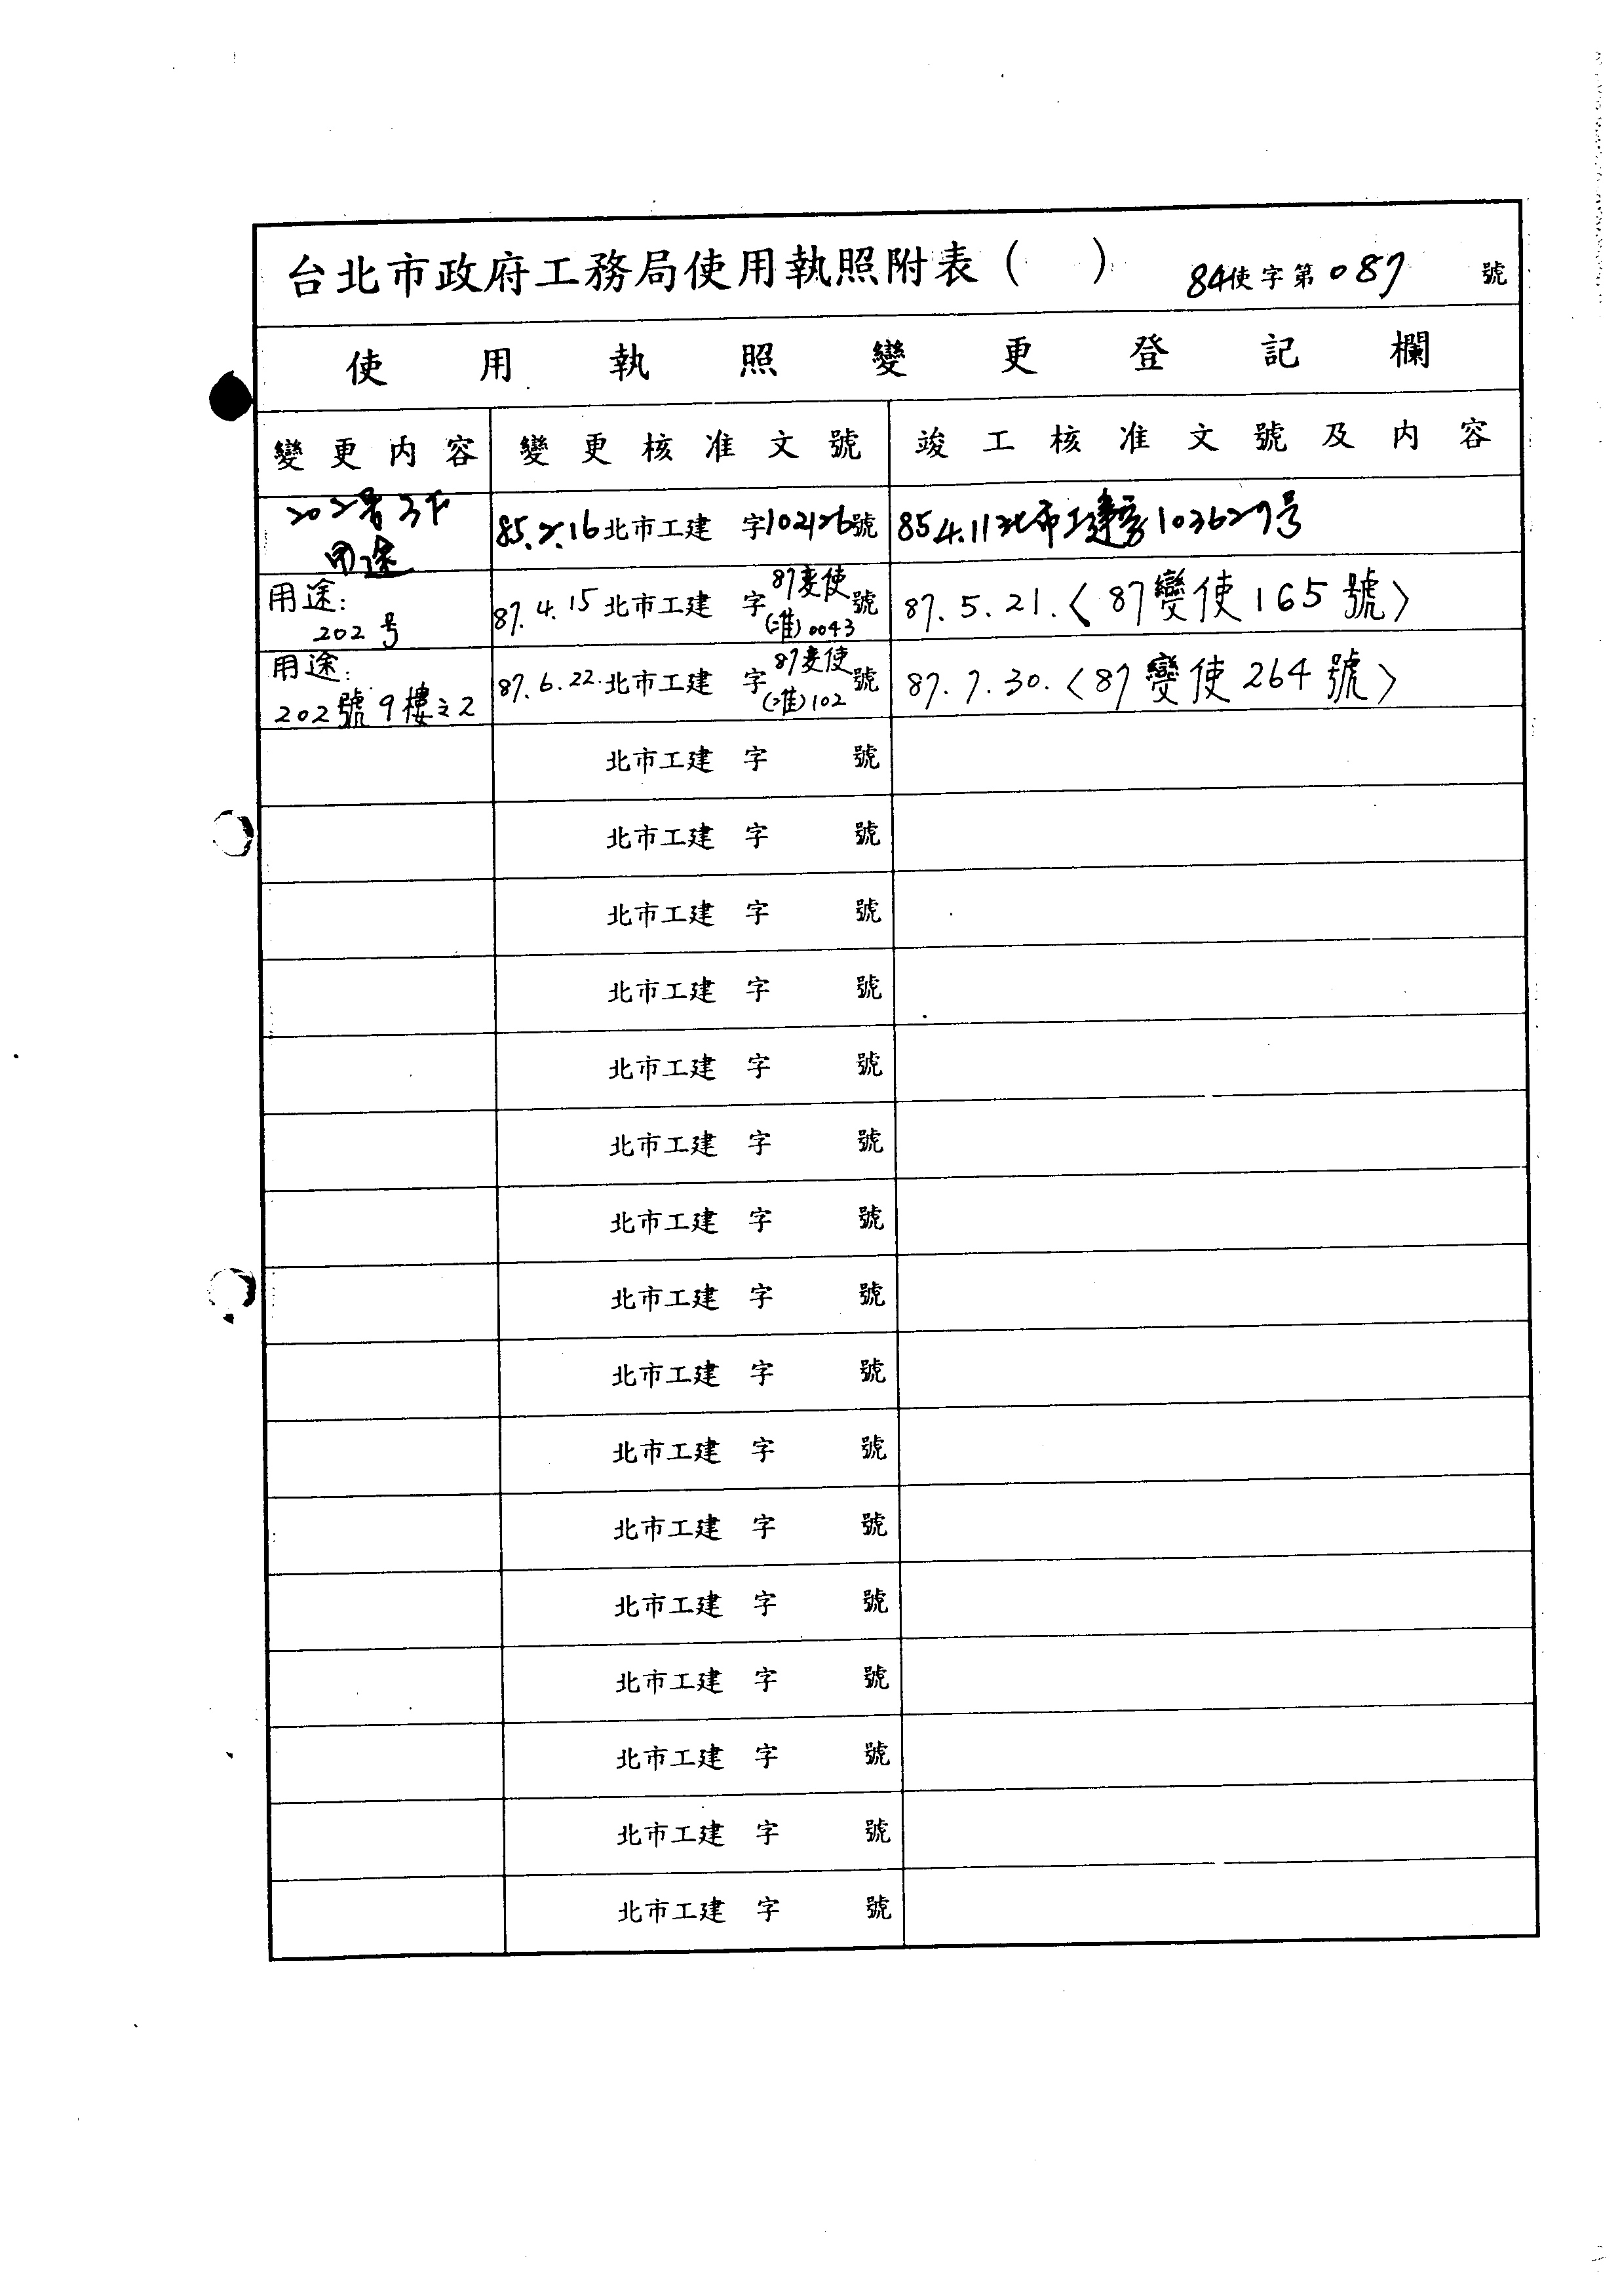 台北市政府工務局使用執照附表（　） 84使字第087 號
使用執照變更登記欄
變更内容 變更核准文號 竣工核准文號及内容
202號3F
用途
85.2.16北市工建 字102126號 85.4.11北市工建字103627号
用途:
202号
87.4.15北市工建 字87変使(准)0043號 87.5.21.〈87變使165號〉
用途:
202號9樓之2
87.6.22.北市工建 字87変使(准)102號 87.7.30.〈87變使264號〉
北市工建 字 號
北市工建 字 號
北市工建 字 號
北市工建 字 號
北市工建 字 號
北市工建 字 號
北市工建 字 號
北市工建 字 號
北市工建 字 號
北市工建 字 號
北市工建 字 號
北市工建 字 號
北市工建 字 號
北市工建 字 號
北市工建 字 號
北市工建 字 號